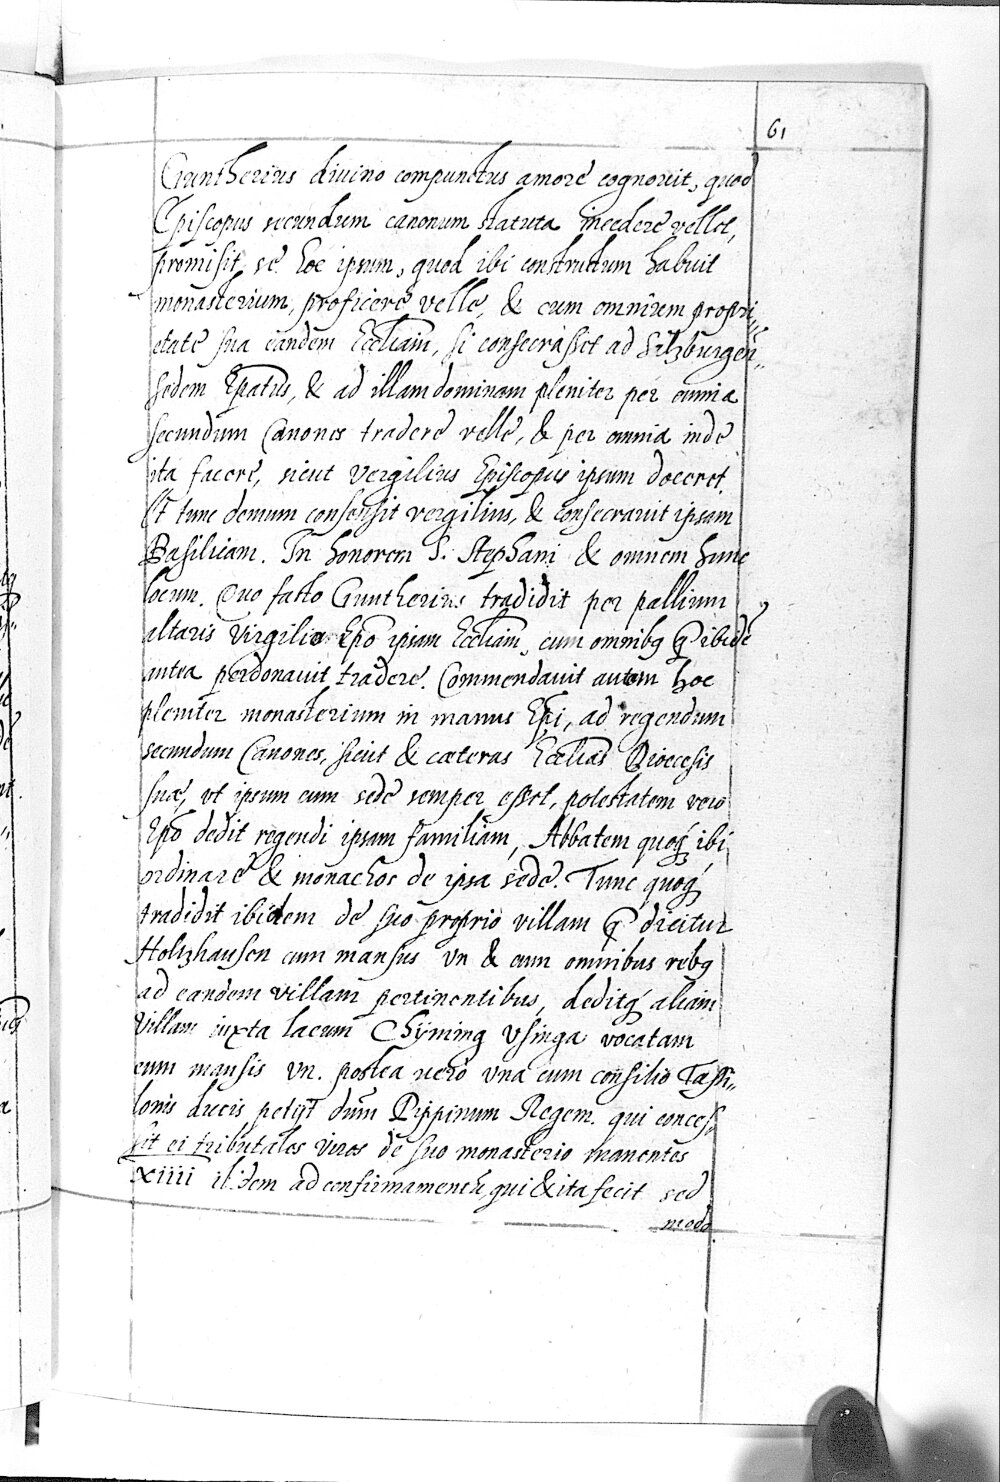 61
Guntherius diuino compunctus amore cognouit, quod
Episcopus secundum canonum statuta incedere vellet,
promisit se hoc ipsum, quod ibi constructum habuit
monasterium, proficere velle, & cum omnium propri„
etate sua eandem Eccliam, si consecrasset ad Saltzburgen„
sedem Epatus, & ad illam dominam pleniter per omnia
secundum Canones tradere velle, & per omnia inde
ita facere, sicut Vergilius Episcopus ipsum doceret.
Et tunc demum consensit vergilius, & consecrauit ipsam
Basilicam. In honorem S. Stephani & omnem hunc
locum. Quo facto Guntherius tradidit per pallium
altaris Virgilio Epo ipsam Eccliam, cum omnibq q ibidē
antea perdonauit tradere. Commendauit autem hoc
pleniter monasterium in manus Epi, ad regendum
secundum Canones, sicut & cæteras Ecclias Diœcesis
suæ, vt ipsum cum sede semper esset, potestatem vero
Epo dedit regendi ipsam familiam, Abbatem quoq ibi
ordinare & monachos de ipsa sede. Tunc quoq
tradidit ibidem de suo proprio villam q dicitur
Holtzhausen cum mansus vn & cum omnibus rebq
ad eandem villam pertinentibus, deditq aliam
Villam iuxta lacum Chijming Vsinga vocatam
cum mansis vn. postea uero vna cum consilio Tassi„
lonis ducis petijt dum Pippinum Regem. qui conces„
sit ei tributales viros de suo monasterio manentes
xiiii ibidem ad confirmamenta, qui & ita fecit sed
modo